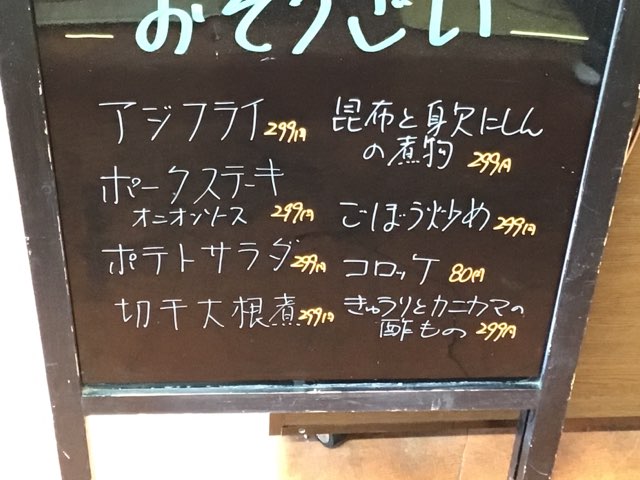 おそうざい
アジフライ 299円
ポークステーキ
オニオンソース 299円
ポテトサラダ 299円
切干大根煮 299円
昆布と身欠にしん
の煮物 299円
ごぼう炒め 299円
コロッケ 80円
きゅうりとカニカマの
酢もの 299円